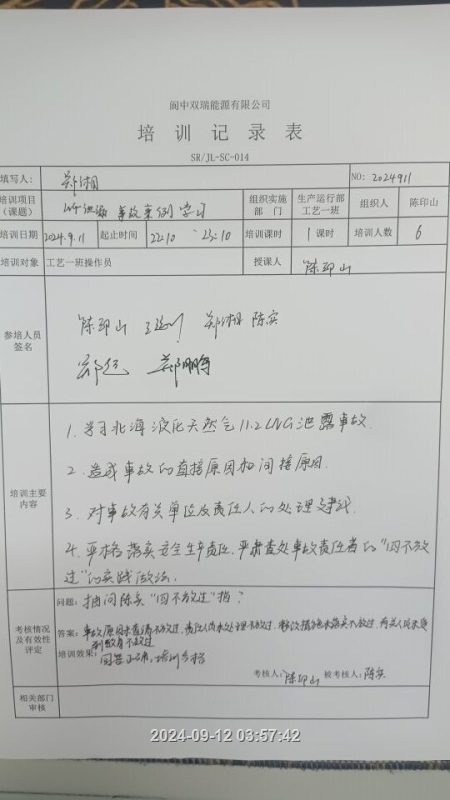 阆中双瑞能源有限公司
培训记录表
SR/JL-SC-014
填写人: 郑湘 NO: 20240911
培训项目(课题) LNG泄漏 事故案例学习 组织实施部门 生产运行部工艺一班 组织人 陈印山
培训日期 2024.9.11 起止时间 22:10~23:10 培训课时 1课时 培训人数 6
培训对象 工艺一班操作员 授课人 陈印山
参培人员签名
陈印山 郑湘 陈实
郑鹏
培训主要内容
1. 学习北海液化天然气11.2LNG泄露事故.
2. 造成事故的直接原因和间接原因.
3. 对事故有关单位及责任人的处理建议.
4. 严格落实安全生产责任,严肃查处事故责任者的"四不放
过"的实践做法.
考核情况及有效性评定
问题: 抽问陈实"四不放过"指?
答案: 事故原因未查清不放过,责任人员未处理不放过,整改措施未落实不放过,有关人员未受
到教育不放过
培训效果: 回答正确,培训合格
考核人: 陈印山 被考核人: 陈实
相关部门审核
2024-09-12 03:57:42